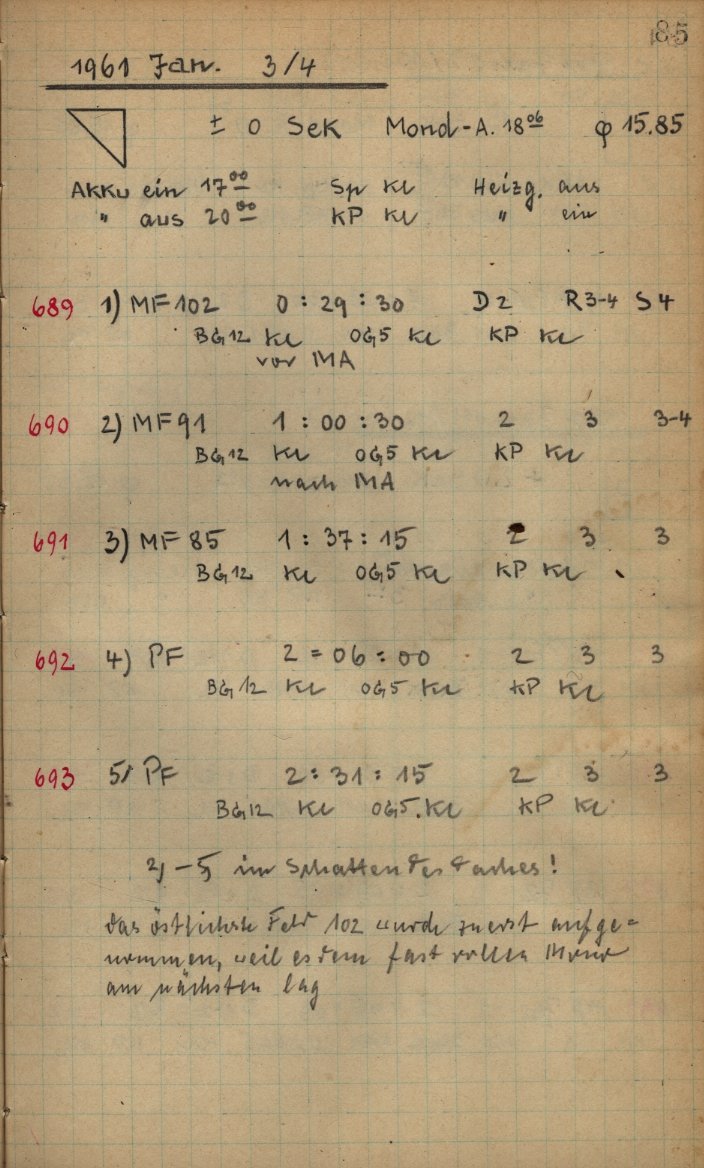 85
1961 Jan. 3/4
± 0 Sek Mond-A. 18 06 φ 15.85
Akku ein 17 00 Sp Kl Heizg. aus
" aus 20 00 KP Kl " ein
689 1) MF 102 0 : 29 : 30 D2 R3-4 S4
BG12 Kl OG5 Kl KP Kl
vor MA
690 2) MF 91 1 : 00 : 30 2 3 3-4
BG12 Kl OG5 Kl KP Kl
nach MA
691 3) MF 85 1 : 37 : 15 2 3 3
BG12 Kl OG5 Kl KP Kl
692 4) PF 2 = 06 : 00 2 3 3
BG12 Kl OG5 Kl KP Kl
693 5) PF 2 : 31 : 15 2 3 3
BG12 Kl OG5 Kl KP Kl
2) – 5) im Schatten des Daches!
das östlichste Feld 102 wurde zuerst aufge=
nommen, weil es dem fast vollen Mond
am nächsten lag